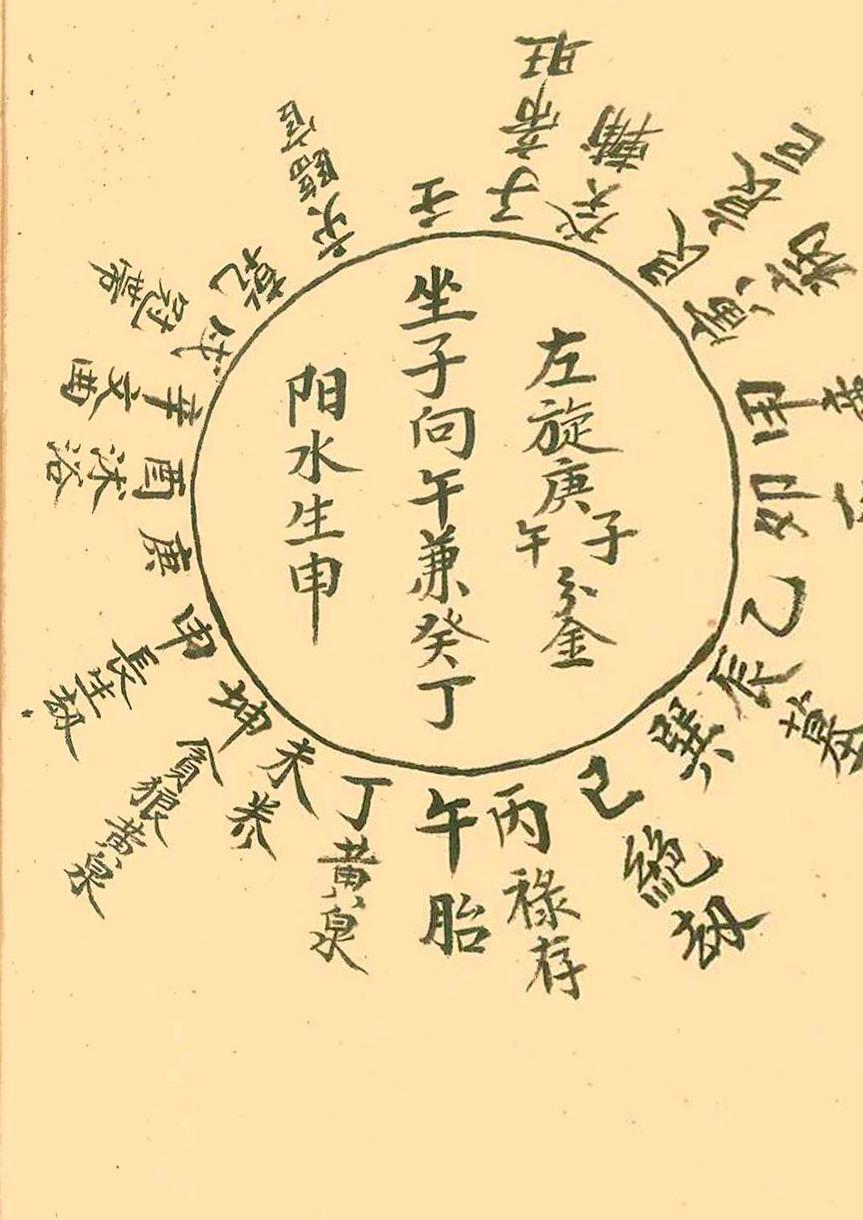 左旋庚子
午分金
坐子向午兼癸丁
阳水生申
壬
子帝旺
癸輔
艮
寅病
甲
卯
乙
辰墓
巽
巳絕劫
丙祿存
午胎
丁黃泉
未养
坤貪狼黃泉
申長生劫
庚
酉沐浴
辛文曲
戌冠帶
乾
亥臨官